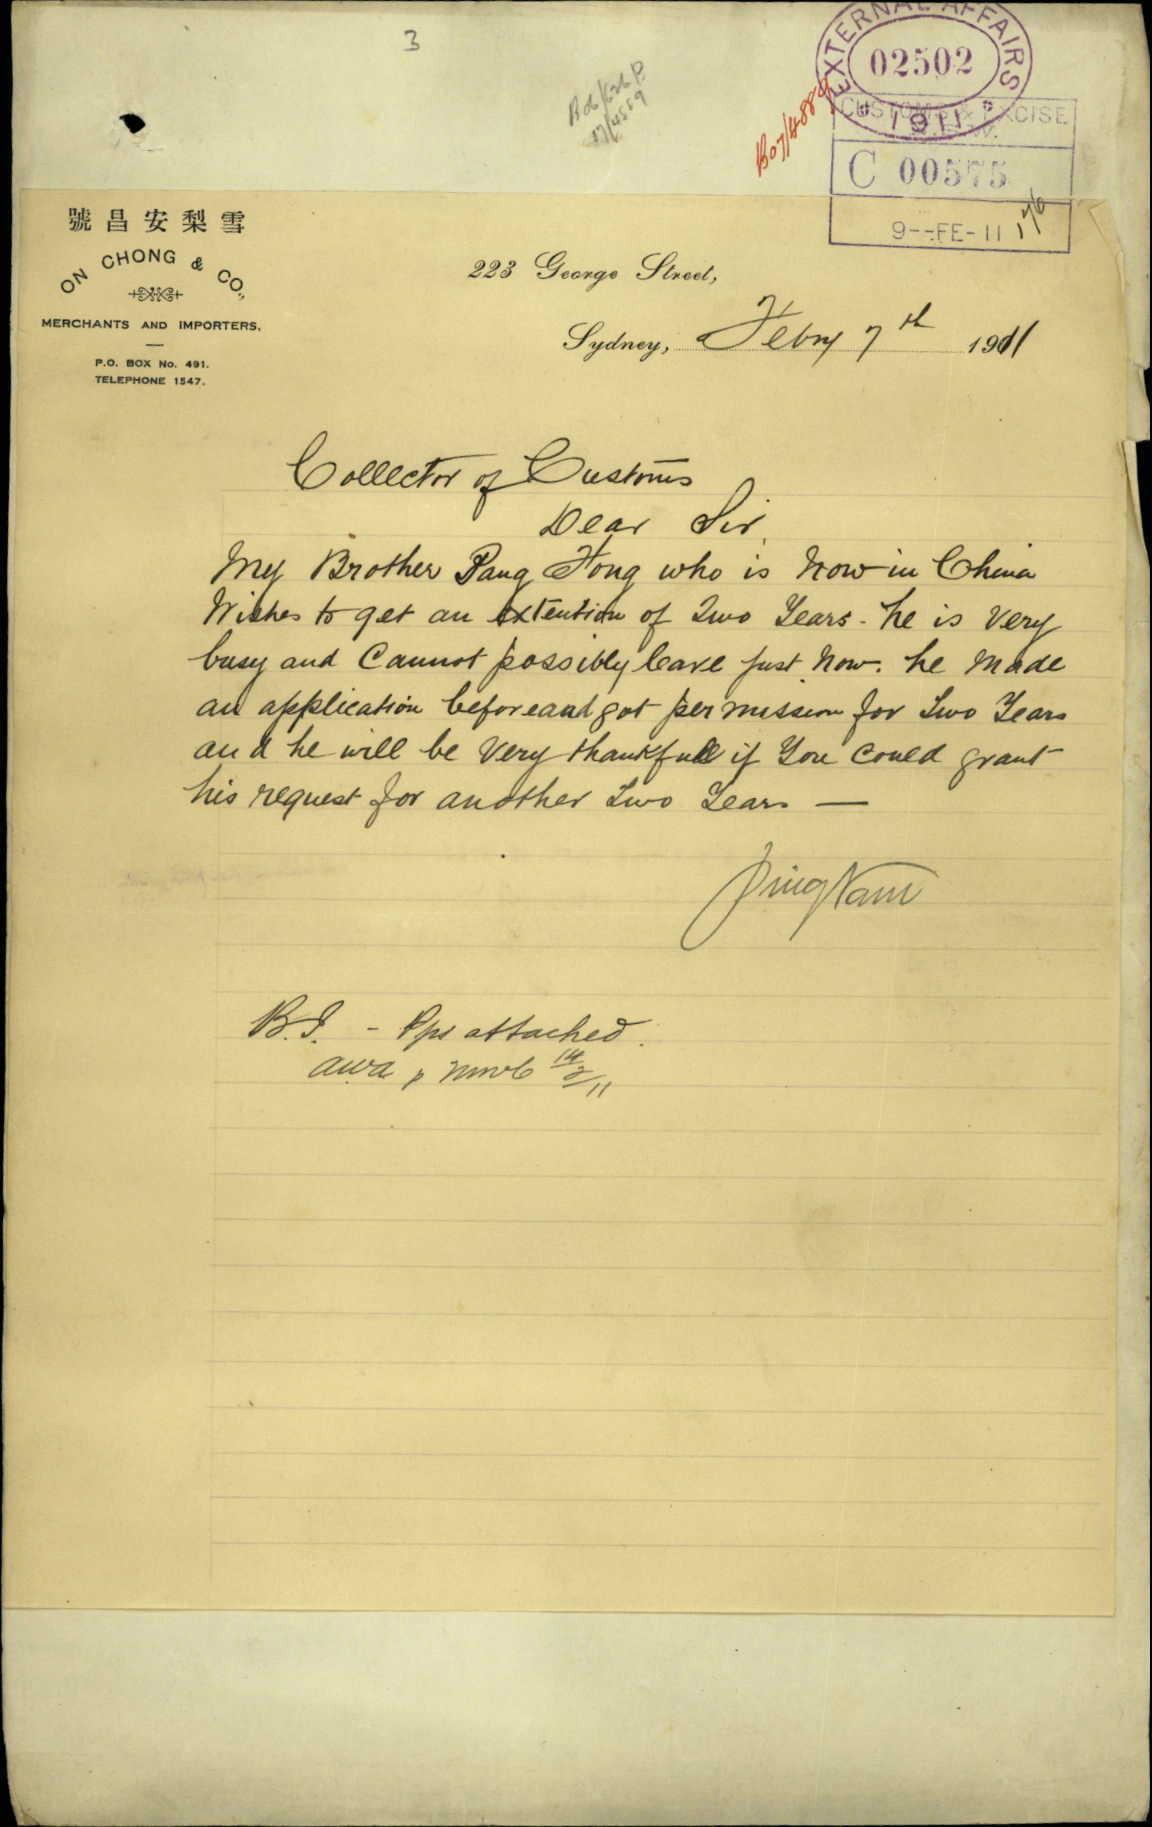 3
EXTERNAL AFFAIRS
02502
1911
CUSTOMS & EXCISE
N.S.W.
C 00575
9--FE-11
B07/4889
號昌安梨雪
ON CHONG & CO.,
MERCHANTS AND IMPORTERS.
P.O. BOX No. 491.
TELEPHONE 1547.
223 George Street,
Sydney, Febry 7th 1911
Collector of Customs
Dear Sir,
My Brother Pang Fong who is Now in China
Wishes to get an extention of Two Years - he is Very
busy and Cannot possibly leave just Now. he Made
an application before and got permission for Two Years
and he will be Very thankfull if You Could grant
his request for another Two Years —
Ping Nam
B.I. - Pps attached.
14/2/11